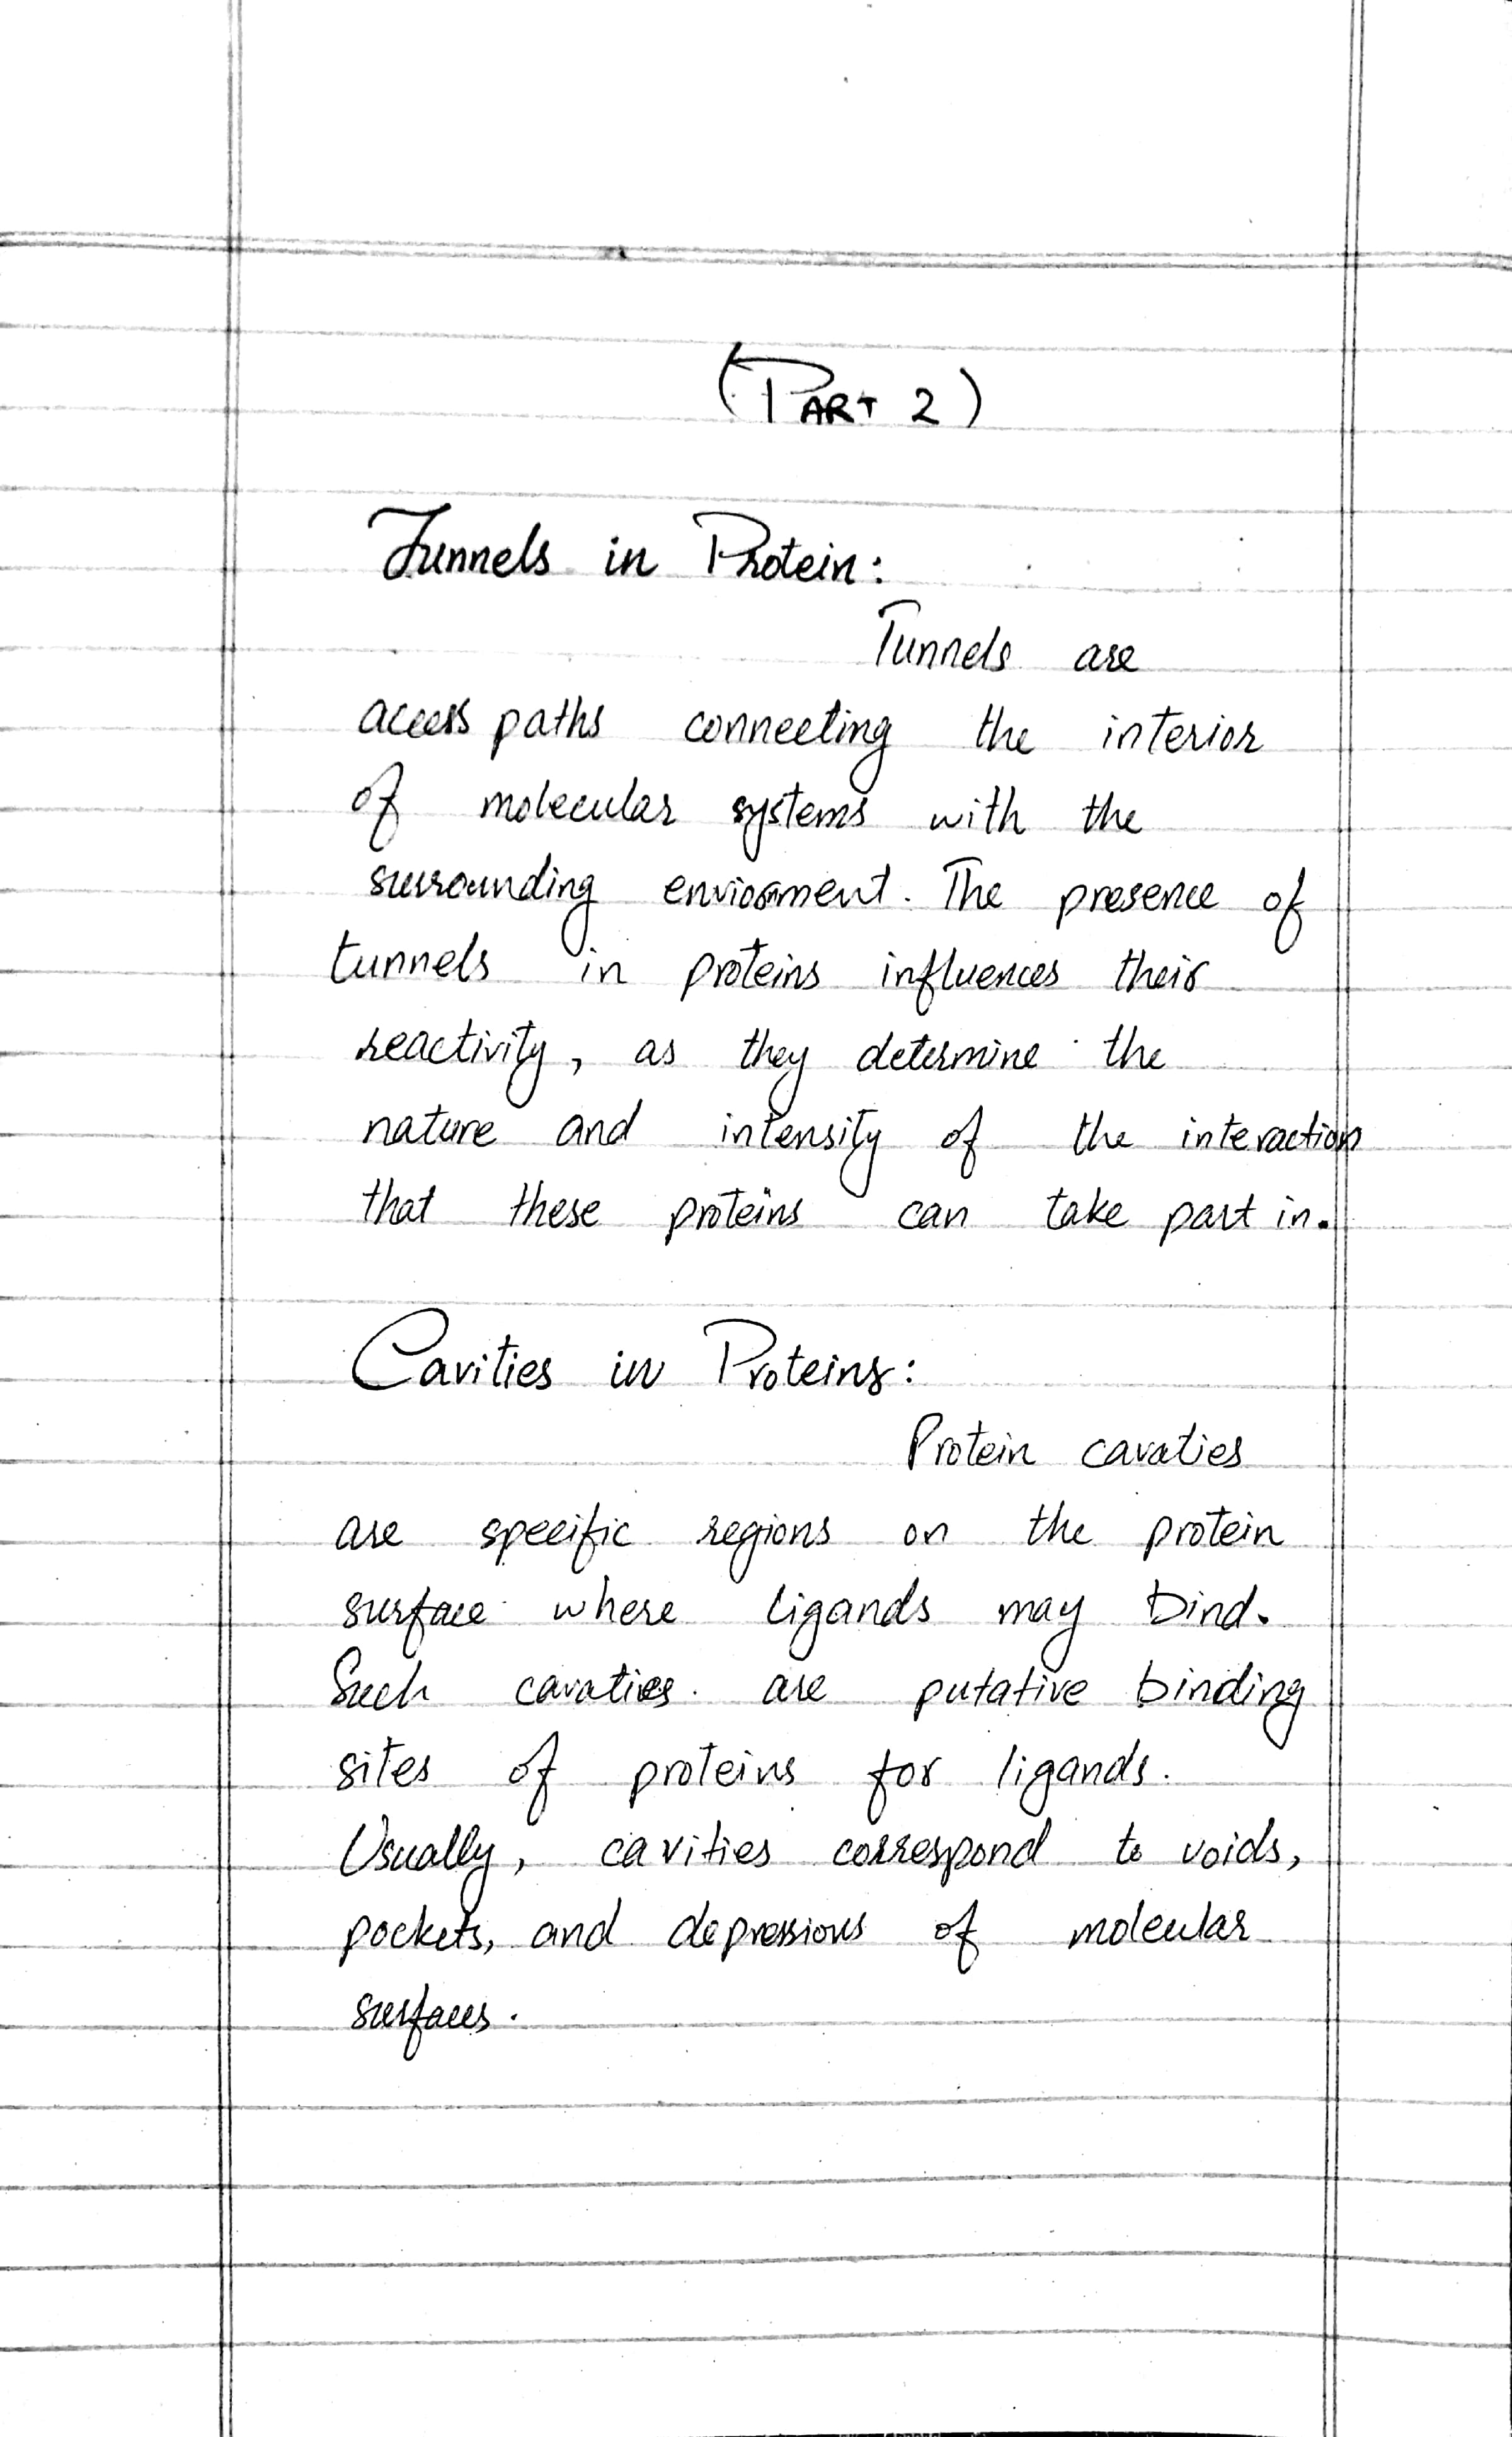 (PART 2)
Tunnels in Protein:
Tunnels are
access paths connecting the interior
of molecular systems with the
surrounding enviornment. The presence of
tunnels in proteins influences their
reactivity, as they determine the
nature and intensity of the interaction
that these proteins can take part in.
Cavities in Proteins:
Protein cavaties
are specific regions on the protein
surface where ligands may bind.
Such cavaties are putative binding
sites of proteins for ligands.
Usually, cavities correspond to voids,
pockets, and depressions of molecular
surfaces.